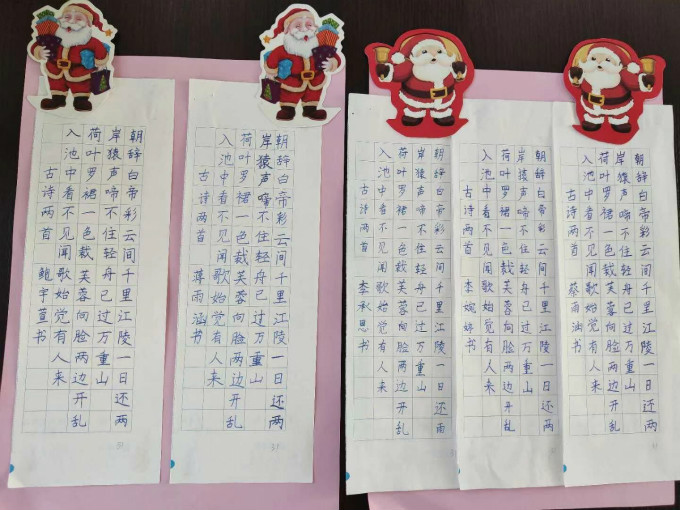 朝辞白帝彩云间千里江陵一日还两
岸猿声啼不住轻舟已过万重山
荷叶罗裙一色裁芙蓉向脸两边开乱
入池中看不见闻歌始觉有人来
古诗两首 鲍宇萱书
朝辞白帝彩云间千里江陵一日还两
岸猿声啼不住轻舟已过万重山
荷叶罗裙一色裁芙蓉向脸两边开乱
入池中看不见闻歌始觉有人来
古诗两首 蒋雨涵书
朝辞白帝彩云间千里江陵一日还雨
岸猿声啼不住轻舟已过万重山
荷叶罗裙一色裁芙蓉向脸两边开乱
入池中看不见闻歌始觉有人来
古诗两首 李承思书
朝辞白帝彩云间千里江陵一日还两
岸猿声啼不住轻舟已过万重山
荷叶罗裙一色裁芙蓉向脸两边开乱
入池中看不见闻歌始觉有人来
古诗两首 李婉婷书
朝辞白帝彩云间千里江陵一日还两
岸猿声啼不住轻舟已过万重山
荷叶罗裙一色裁芙蓉向脸两边开乱
入池中看不见闻歌始觉有人来
古诗两首 蔡雨涵书